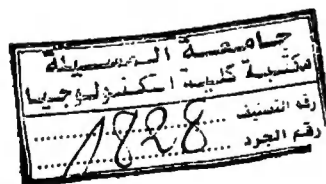 جامعة المسيلة
مكتبة كلية التكنولوجيا
رقم التصنيف ..........
رقم الجرد ..........
1828